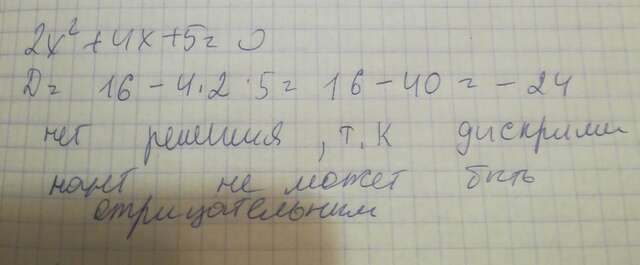 2x²+4x+5=0
D= 16-4·2·5= 16-40=-24
нет решения, т.к дискрими
нант не может быть
отрицательним